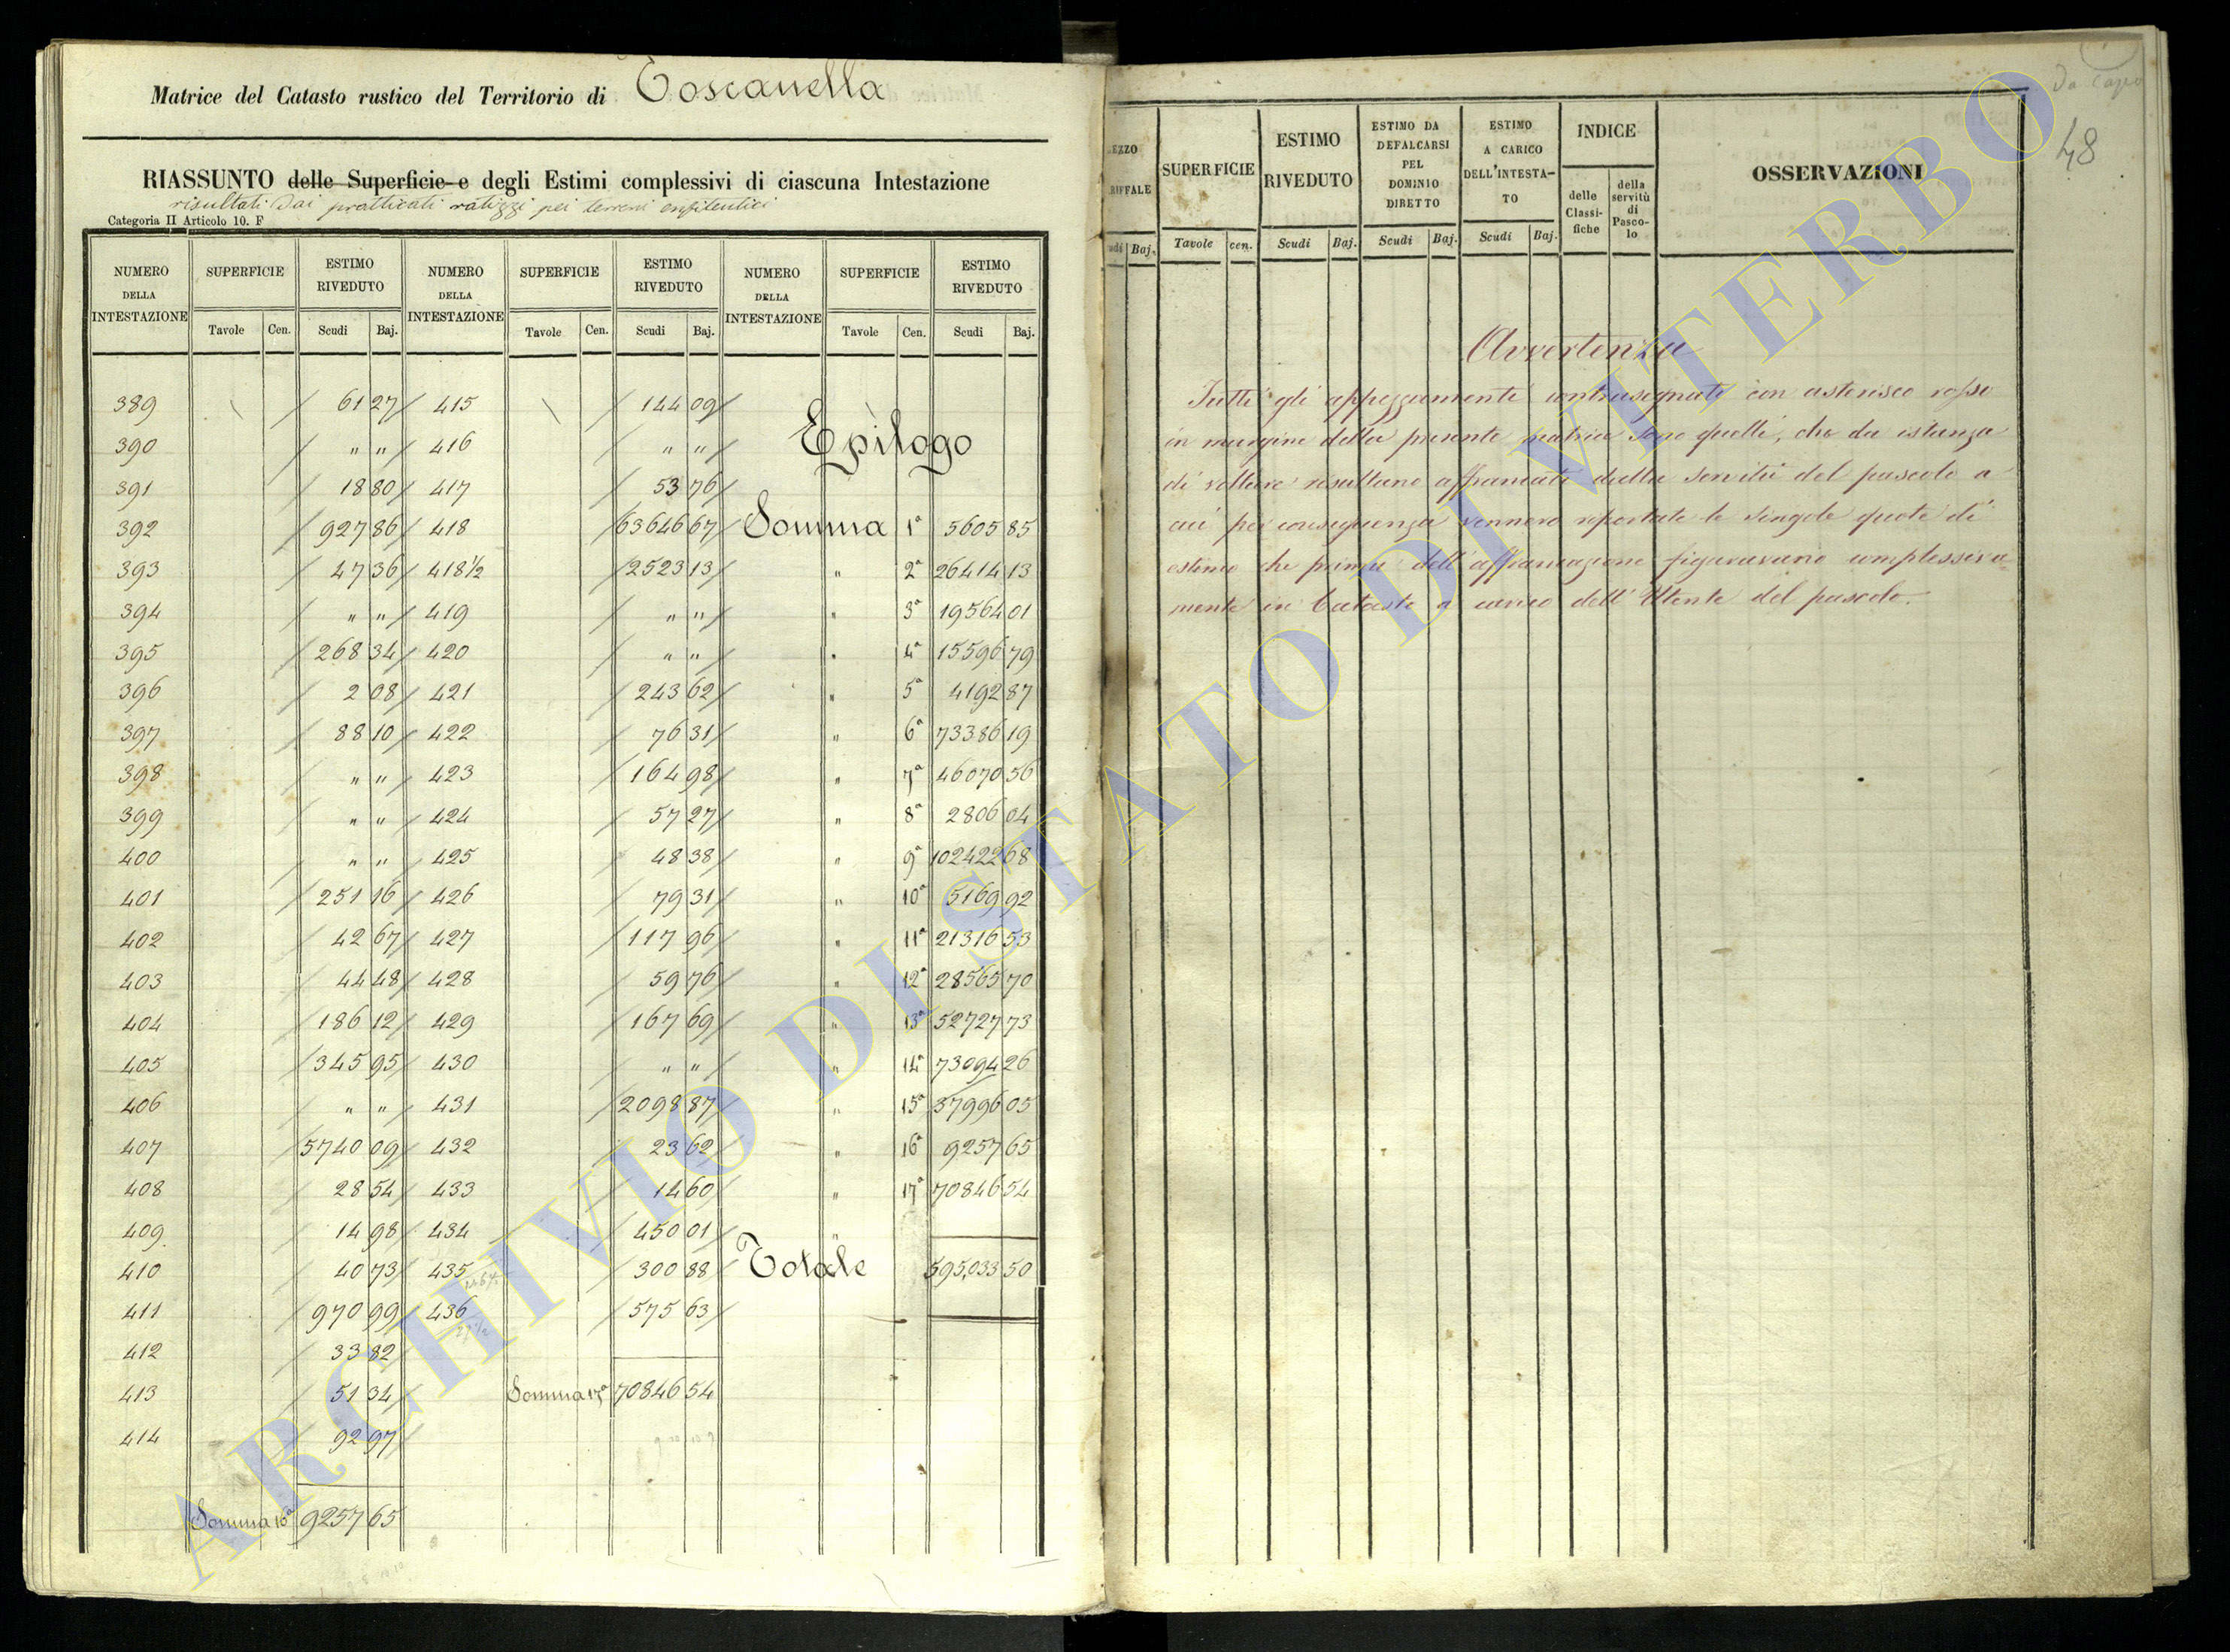 Matrice del Catasto rustico del Territorio di Toscanella
RIASSUNTO delle Superficie e degli Estimi complessivi di ciascuna Intestazione
risultati dai pratticati ratizzi pei terreni enfiteutici
Categoria II Articolo 10. F
NUMERO DELLA INTESTAZIONE SUPERFICIE ESTIMO RIVEDUTO NUMERO DELLA INTESTAZIONE SUPERFICIE ESTIMO RIVEDUTO NUMERO DELLA INTESTAZIONE SUPERFICIE ESTIMO RIVEDUTO
Tavole Cen. Scudi Baj. Tavole Cen. Scudi Baj. Tavole Cen. Scudi Baj.
389 61 27 415 144 09
390 " " 416 " " Epilogo
391 18 80 417 53 76
392 927 86 418 63646 67 Somma 1ª 5605 85
393 47 36 418½ 2523 13 " 2ª 26414 13
394 " " 419 " " " 3ª 19564 01
395 268 34 420 " " " 4ª 15596 79
396 2 08 421 243 62 " 5ª 4192 87
397 88 10 422 76 31 " 6ª 73386 19
398 " " 423 164 98 " 7ª 46070 56
399 " " 424 57 27 " 8ª 2806 04
400 " " 425 48 38 " 9ª 102422 68
401 251 16 426 79 31 " 10ª 5169 92
402 42 67 427 117 96 " 11ª 21316 53
403 44 48 428 59 76 " 12ª 28565 70
404 186 12 429 167 69 " 13ª 52727 73
405 345 95 430 " " " 14ª 73094 26
406 " " 431 2098 87 " 15ª 37996 05
407 5740 09 432 23 62 " 16ª 9257 65
408 28 54 433 14 60 " 17ª 70846 54
409 14 98 434 450 01
410 40 73 435 300 88 Totale 595,033 50
411 970 99 436 575 63
412 33 82
413 51 34 Somma 17ª 70846 54
414 92 97
Somma 16ª 9257 65
da Capo
48
EZZO RIFFALE SUPERFICIE ESTIMO RIVEDUTO ESTIMO DA DEFALCARSI PEL DOMINIO DIRETTO ESTIMO A CARICO DELL'INTESTATO INDICE OSSERVAZIONI
delle Classifiche della servitù di Pascolo
udi Baj. Tavole cen. Scudi Baj. Scudi Baj. Scudi Baj.
Avvertenza
Tutti gli appezzamenti contrasegnati con asterisco rosso
in margine della presente matrice sono quelli, che da istanza
di volture risultano affrancati dalla servitù del pascolo a
cui per conseguenza vennero riportate le singole quote di
estimo che prima dell'affrancazione figuravano complessiva-
mente in Catasto a carico dell'Utente del pascolo.
ARCHIVIO DI STATO DI VITERBO